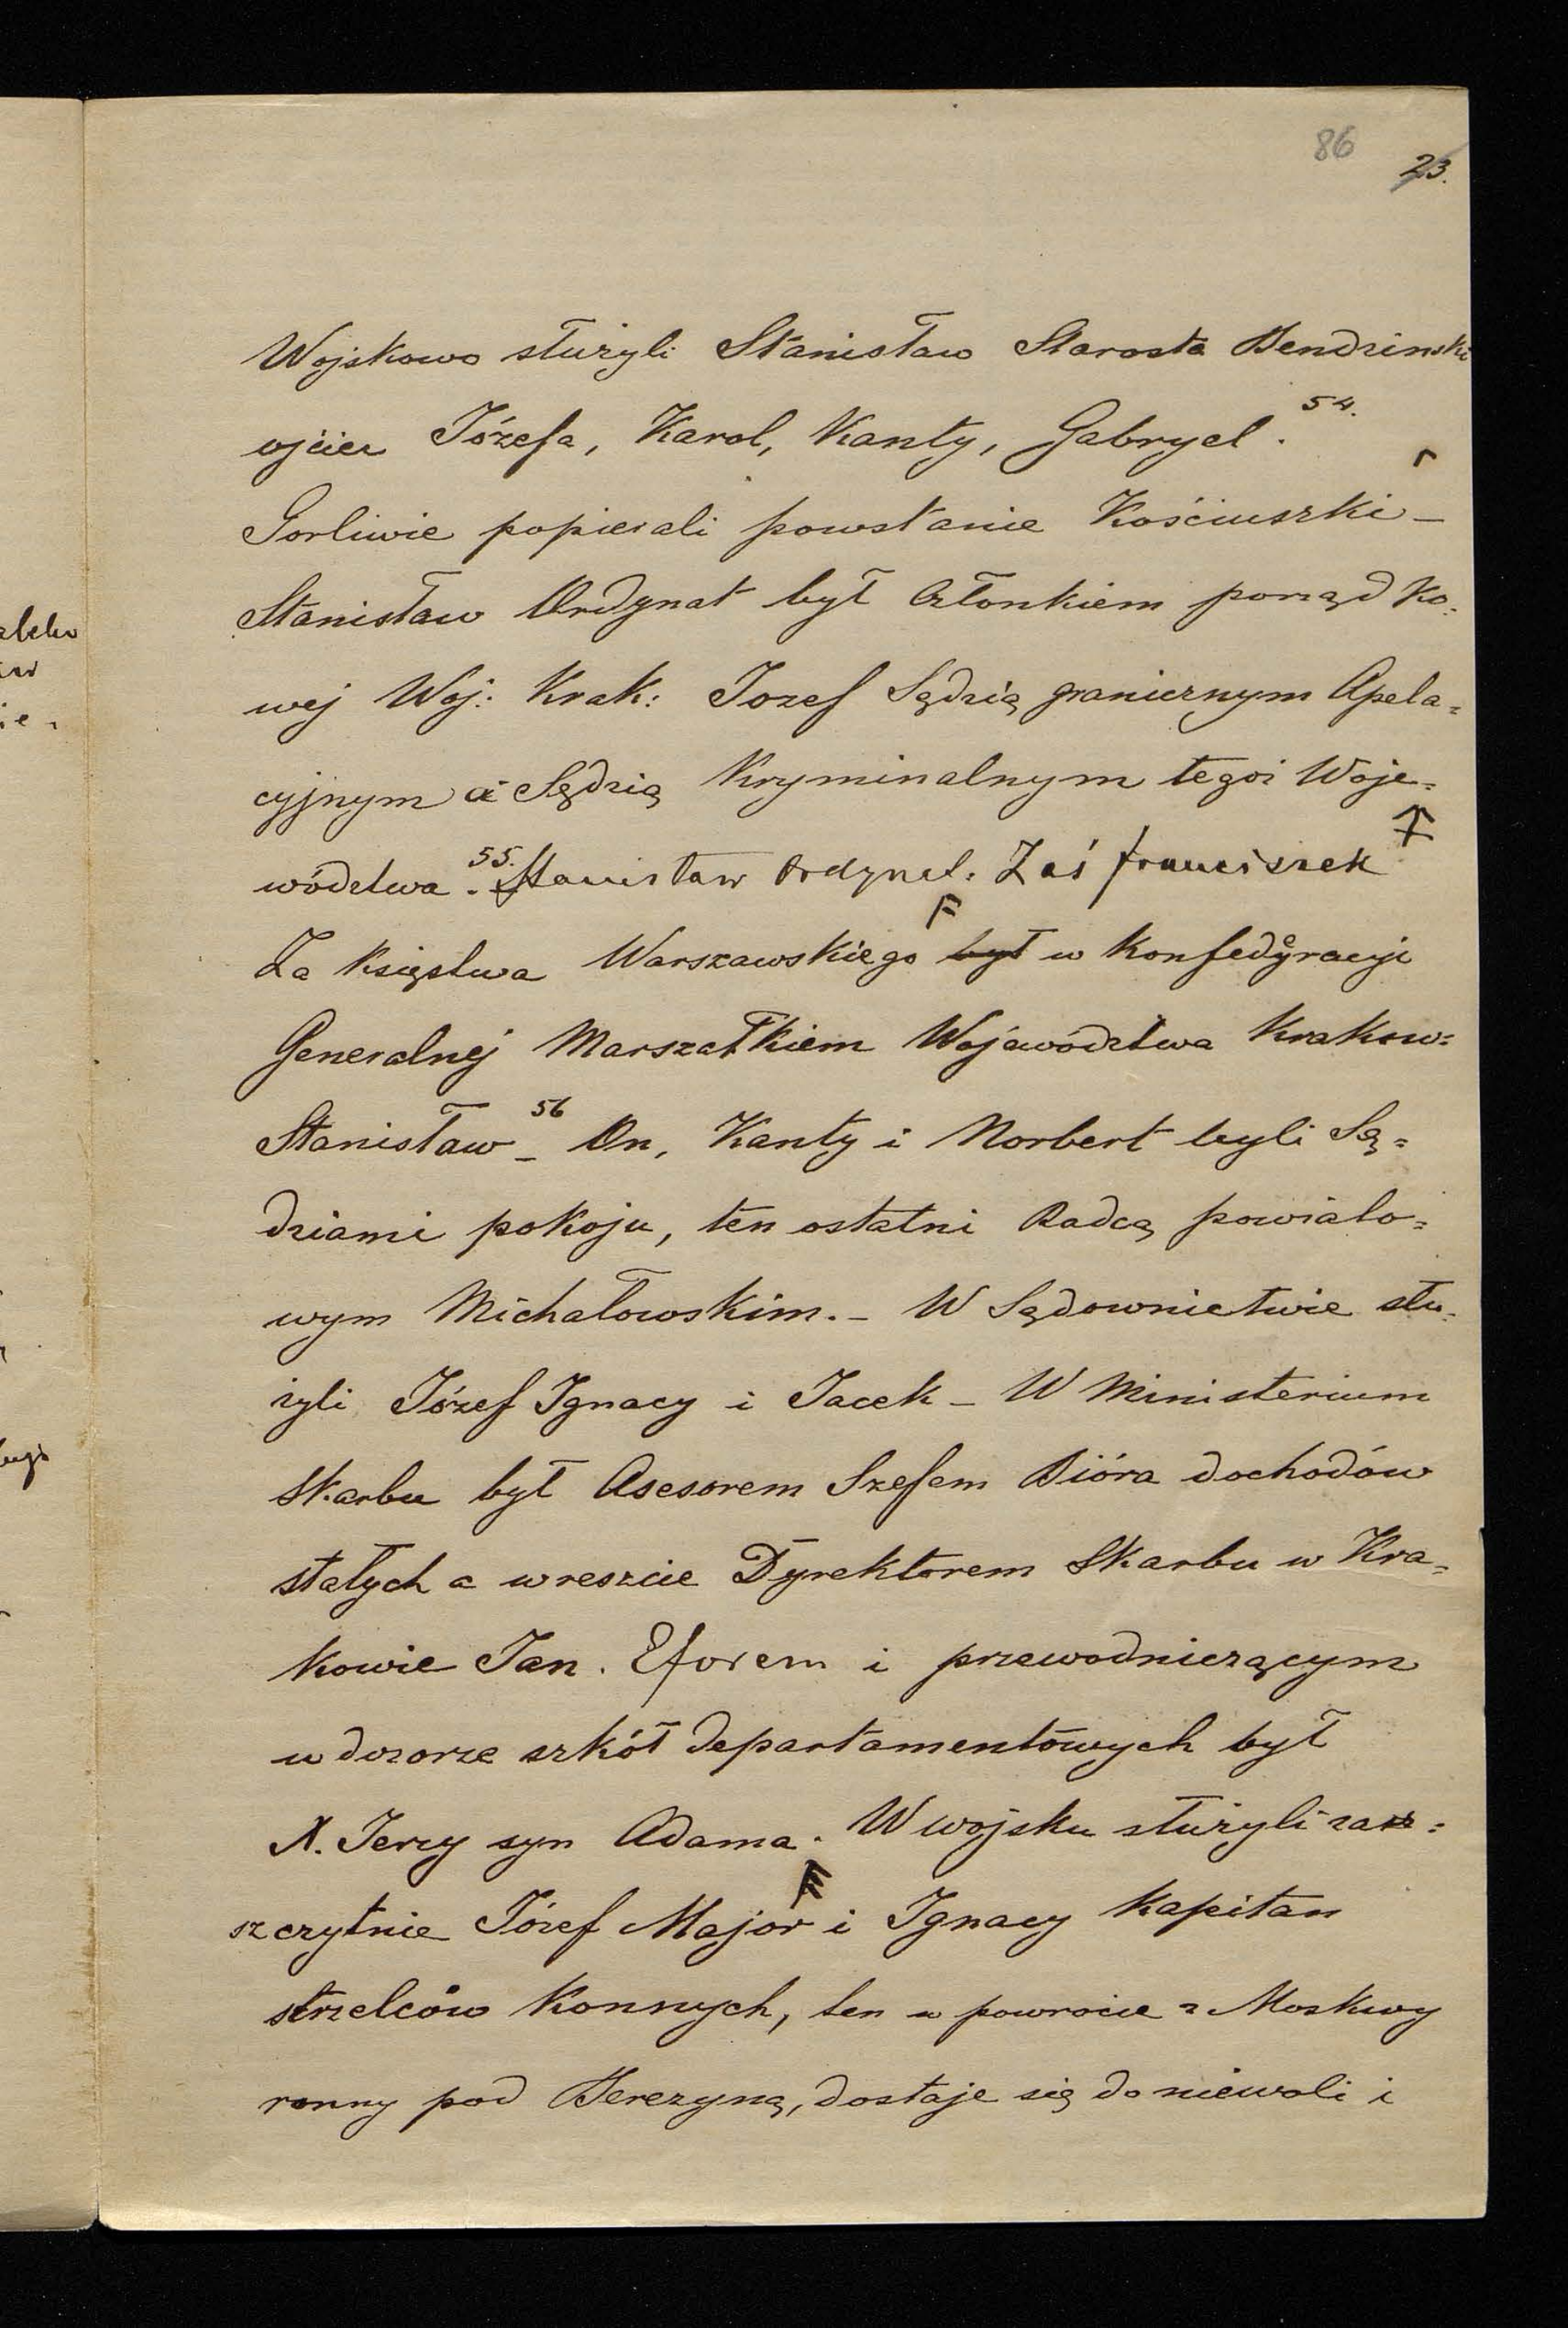 86
23.
Wojskowo służyli Stanisław Starosta Bendzinski
ojciec Józefa, Karol, Kanty, Gabryel. 54.
Gorliwie popierali powstanie Kościuszki –
Stanisław Ordynat był Członkiem porządko=
wej Woj: Krak: Jozef Sędzią granicznym Apela=
cyjnym a Sędzią Kryminalnym tegoż Woje=
wództwa. 55. Stanisław Ordynat. Zaś franciszek
Za Księstwa Warszawskiego był w Konfederacyi
Generalnej Marszałkiem Wojewódstwa Krakow=
Stanisław – 56 On, Kanty i Norbert byli Sę=
dziami pokoju, ten ostatni Radcą powiato=
wym Michałowskim. – W Sądownictwie słu=
żyli Józef Ignacy i Jacek – W Ministerium
Skarbu był Asesorem Szefem Bióra dochodów
stałych a wreszcie Dyrektorem Skarbu w Kra=
kowie Jan. Eforem i przewodniczącym
w dozorze szkół departamentowych był
X. Jerzy syn Adama. W wojsku służyli za=
szczytnie Józef Major i Ignacy Kapitan
strzelców Konnych, ten w powrocie z Moskwy
ranny pod Berezyną, dostaje się do niewoli i